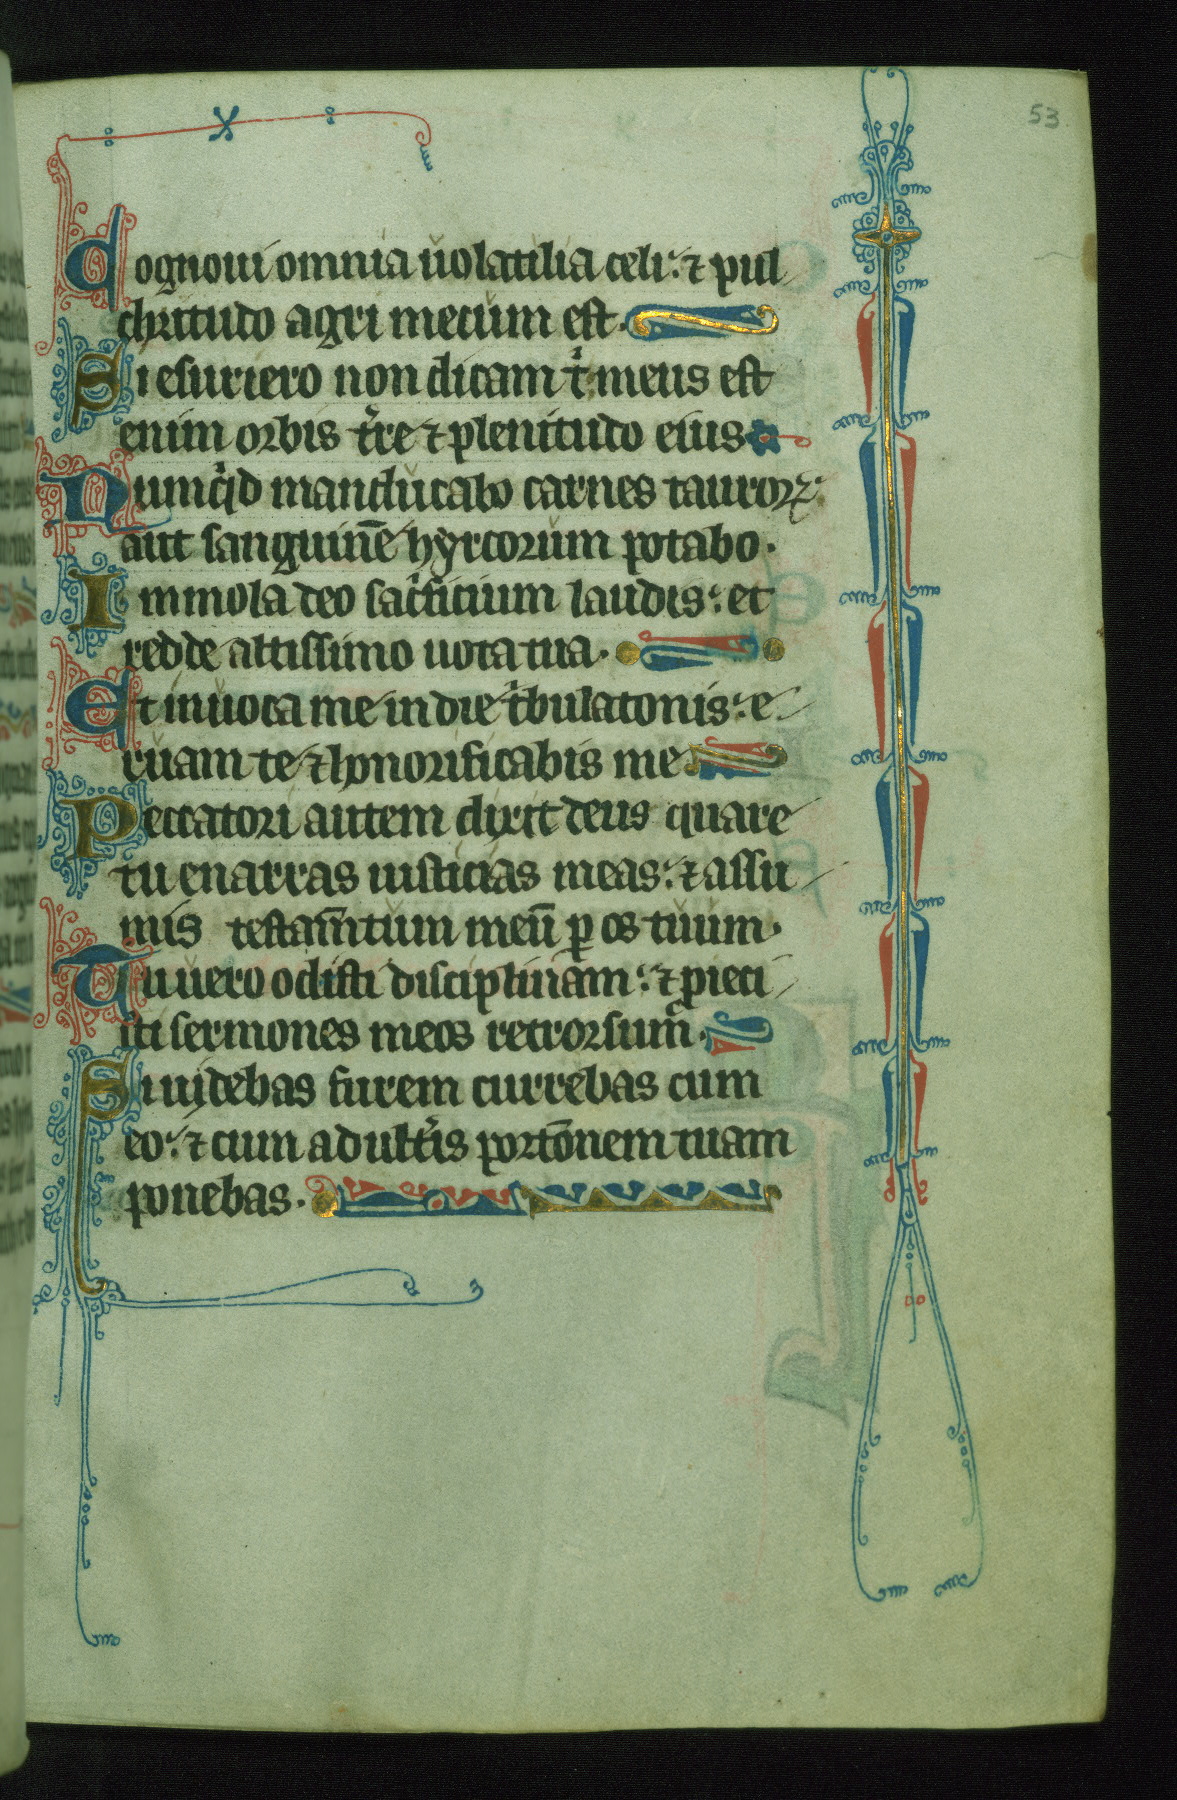 53
Cognoui omnia uolatilia celi: ⁊ pul
chritudo agri mecum est.
Si esuriero non dicam tⁱ meus est
enim orbis t̾re ⁊ plenitudo eius
Numqͥd manducabo carnes tauroꝝ
aut sanguinē hyrcorum potabo.
Immola deo sac̾ficium laudis: et
redde altissimo uota tua.
Et inuoca me in die tͥbulatonis: e
ruam te ⁊ honorificabis me
Peccatori autem dixit deus quare
tu enarras iusticias meas: ⁊ assu
mis testam̄tum meū ꝑ os tuum.
Tu uero odisti disciplinam: ⁊ pieci
sti sermones meos retrorsum.
Si uidebas furem currebas cum
eo: ⁊ cum adult̾is portōnem tuam
ponebas.